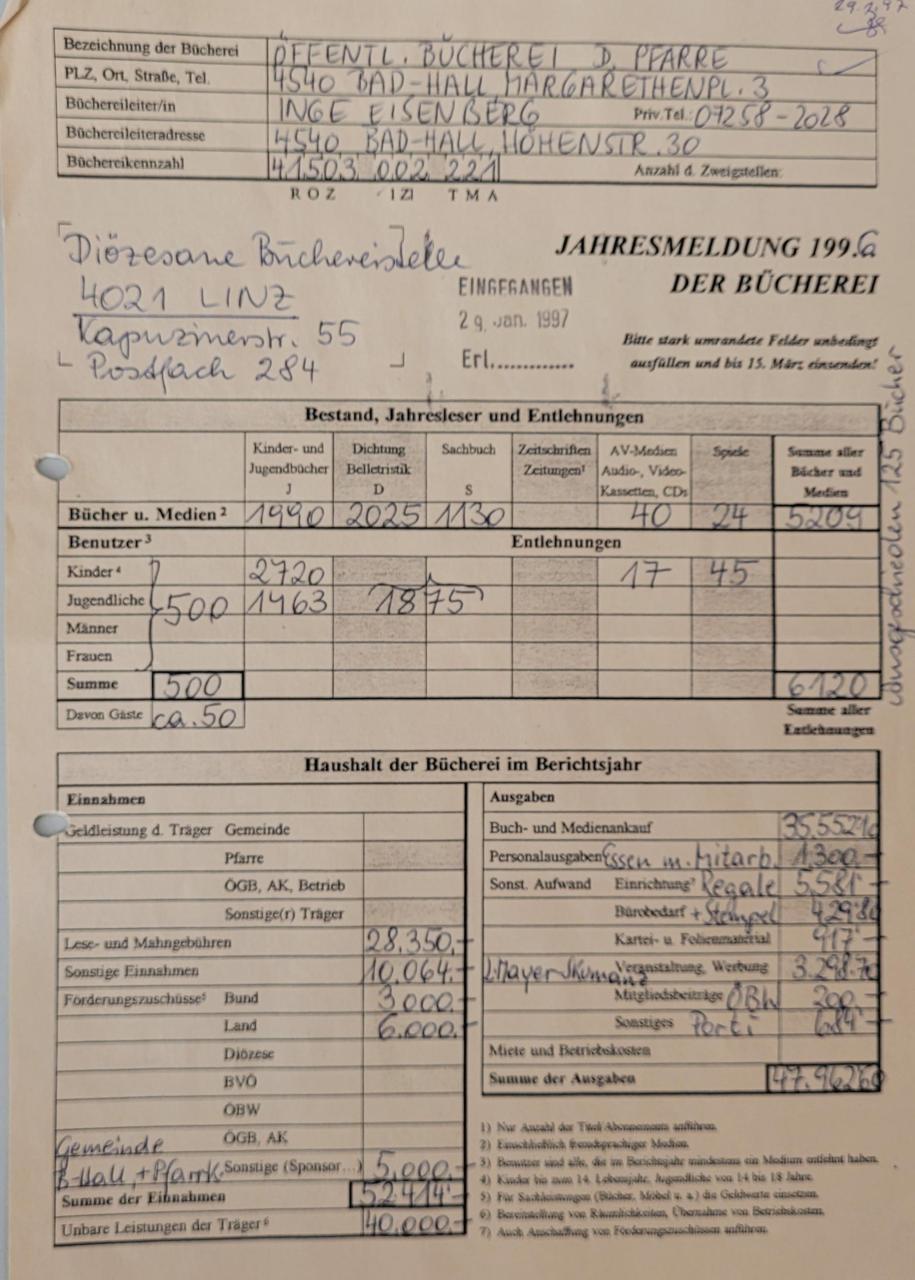 29.1.97
Bezeichnung der Bücherei ÖFFENTL. BÜCHEREI D. PFARRE
PLZ, Ort, Straße, Tel. 4540 BAD-HALL, MARGARETHENPL. 3
Büchereileiter/in INGE EISENBERG Priv.Tel.: 07258-2028
Büchereileiteradresse 4540 BAD-HALL, HÖHENSTR. 30
Büchereikennzahl 41503 002 221 Anzahl d. Zweigstellen:
ROZ IZI TMA
Diözesane Büchereistelle
4021 LINZ
Kapuzinerstr. 55
Postfach 284
EINGEGANGEN
29. Jan. 1997
Erl.............
JAHRESMELDUNG 1996
DER BÜCHEREI
Bitte stark umrandete Felder unbedingt
ausfüllen und bis 15. März einsenden!
ausgeschieden 125 Bücher
Bestand, Jahresleser und Entlehnungen
Kinder- und Jugendbücher J
Dichtung Belletristik D
Sachbuch S
Zeitschriften Zeitungen¹
AV-Medien Audio-, Video-Kassetten, CDs
Spiele
Summe aller Bücher und Medien
Bücher u. Medien ² 1990 2025 1130 40 24 5209
Benutzer ³ Entlehnungen
Kinder ⁴ 2720 17 45
Jugendliche 500 1463 1875
Männer
Frauen
Summe 500 6120
Davon Gäste ca. 50 Summe aller
Entlehnungen
Haushalt der Bücherei im Berichtsjahr
Einnahmen
Geldleistung d. Träger Gemeinde
Pfarre
ÖGB, AK, Betrieb
Sonstige(r) Träger
Lese- und Mahngebühren 28.350,-
Sonstige Einnahmen 10.064,-
Förderungszuschüsse⁵ Bund 3.000,-
Land 6.000,-
Diözese
BVÖ
ÖBW
ÖGB, AK
Gemeinde
B-Hall + Pfarre Sonstige (Sponsor...) 5.000,-
Summe der Einnahmen 52.414,-
Unbare Leistungen der Träger⁶ 40.000,-
Ausgaben
Buch- und Medienankauf 35.552,10
Personalausgaben Essen m. Mitarb. 1.300,-
Sonst. Aufwand Einrichtung⁷ Regale 5.581,-
Bürobedarf + Stempel 429,80
Kartei- u. Folienmaterial 917,-
Veranstaltung, Werbung 3.298,70
Mitgliedsbeiträge ÖBW 200,-
Sonstiges Porti 684,-
Miete und Betriebskosten
Summe der Ausgaben 47.962,60
1) Nur Anzahl der Titel/Abonnements anführen.
2) Einschließlich fremdsprachiger Medien.
3) Benutzer sind alle, die im Berichtsjahr mindestens ein Medium entlehnt haben.
4) Kinder bis zum 14. Lebensjahr, Jugendliche von 14 bis 18 Jahre.
5) Für Sachleistungen (Bücher, Möbel u. a.) die Geldwerte einsetzen.
6) Bereitstellung von Räumlichkeiten, Übernahme von Betriebskosten.
7) Auch Anschaffung von Förderungszuschüssen anführen.